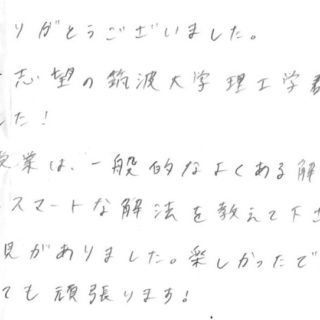 りがとうございました。
志望の筑波大学理工学
した!
業は、一般的なよくある解
スマートな解法を教えて下さ
見がありました。楽しかったで
ても頑張ります!